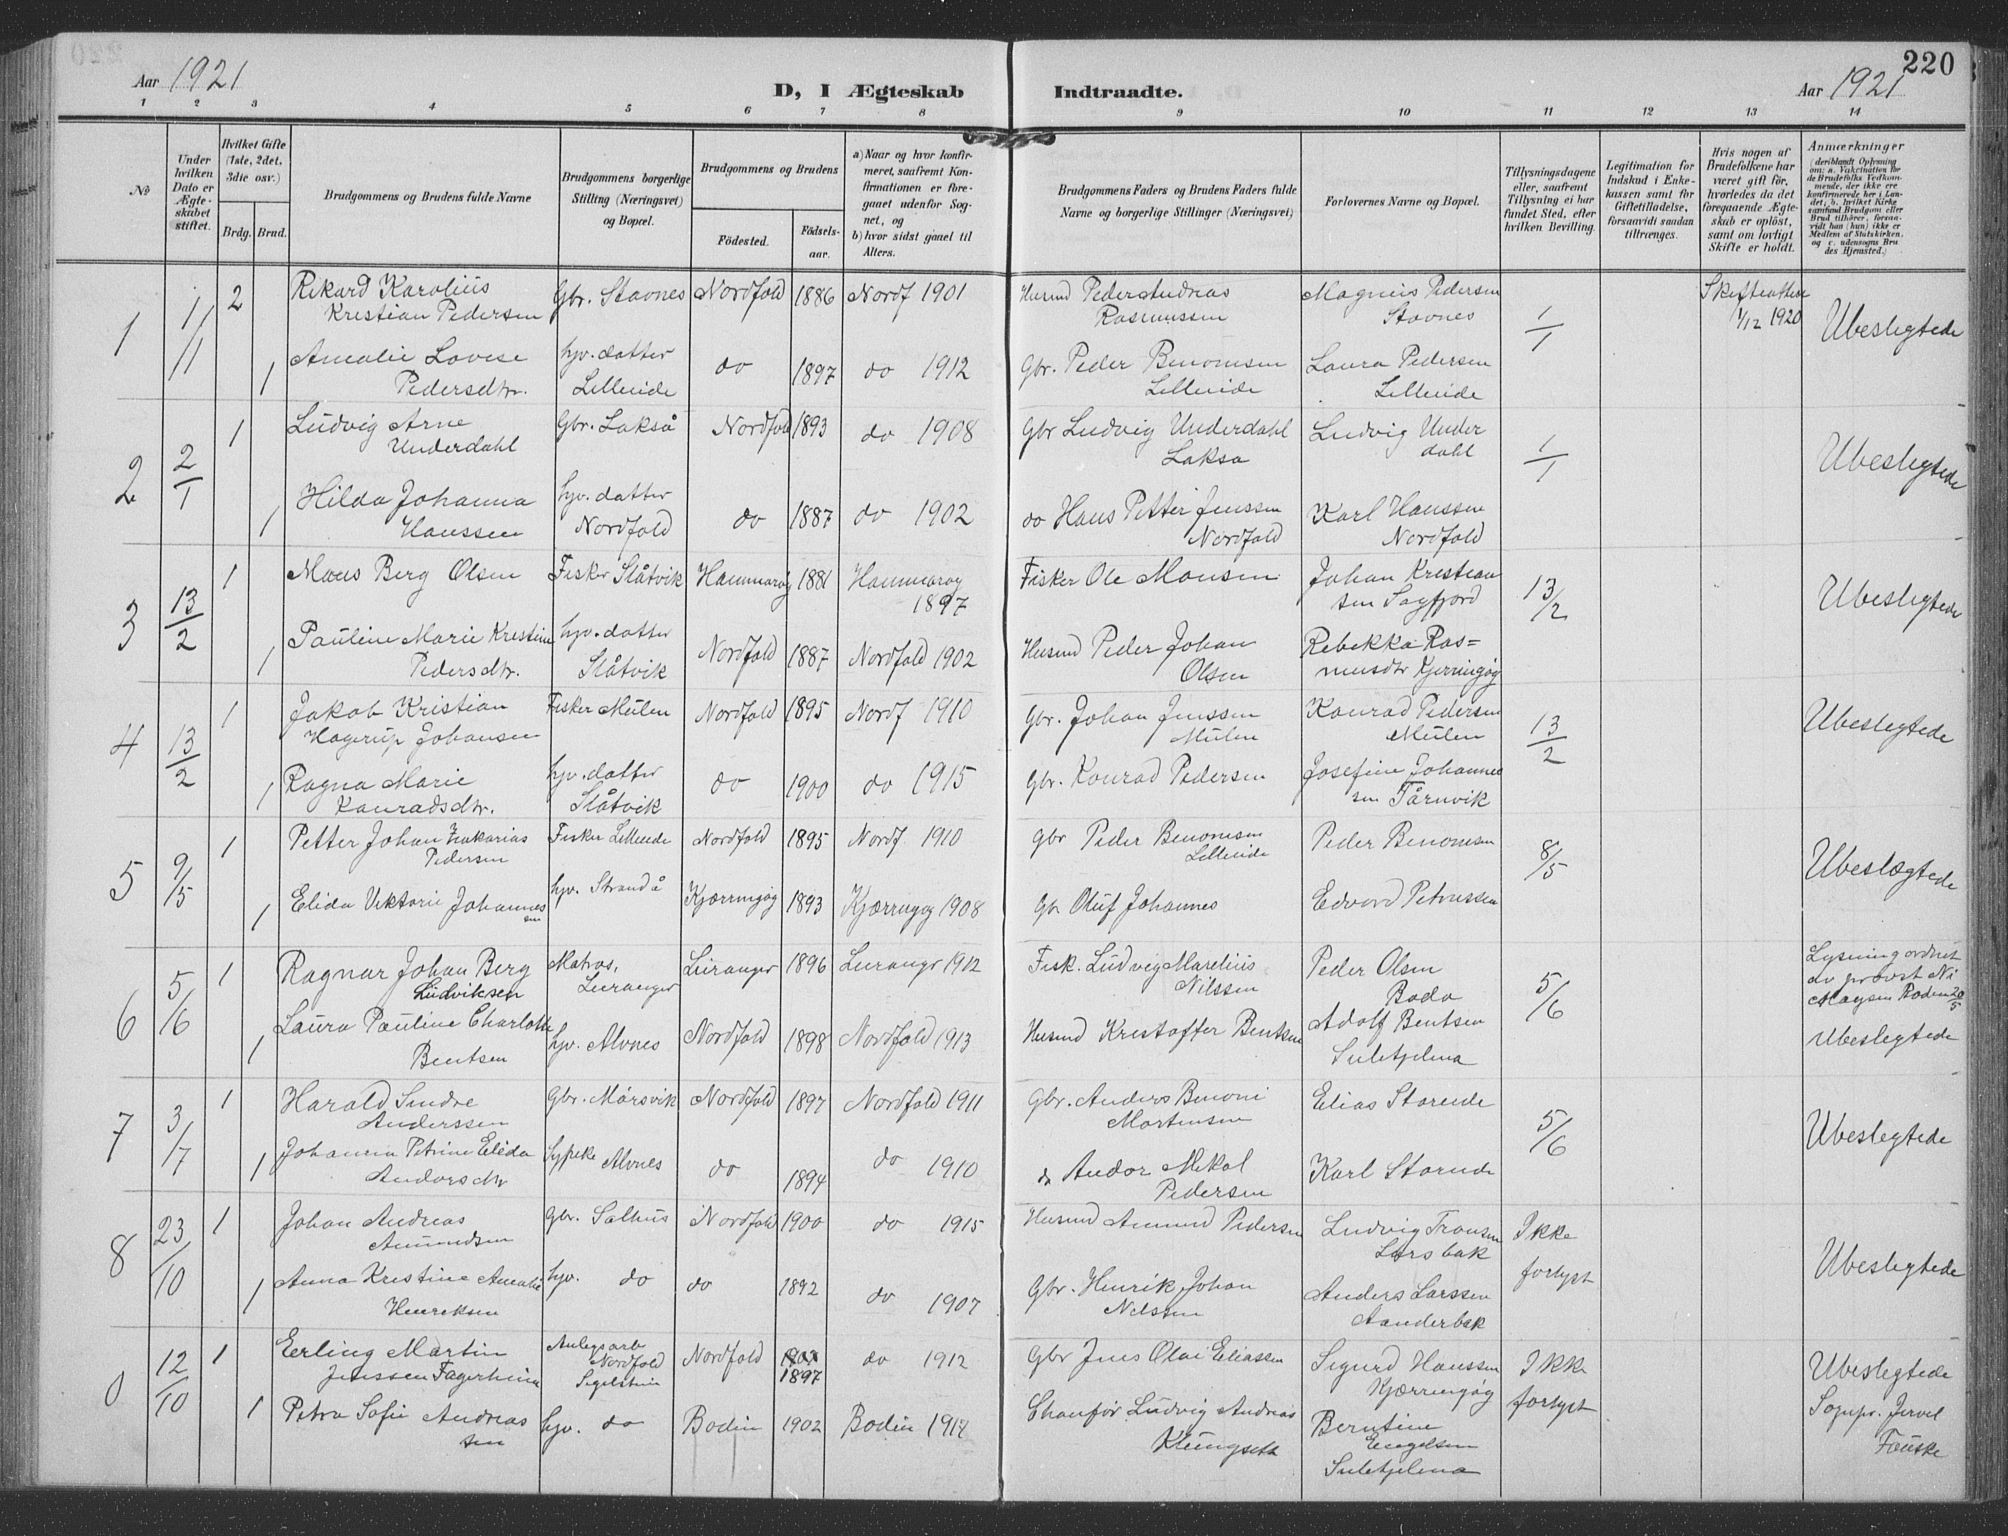 220
Aar 1921
D, I Ægteskab Indtraadte.
Aar 1921
1 2 3 4 5 6 7 8 9 10 11 12 13 14
No
Under hvilken Dato er Ægteskabet stiftet.
Hvilket Gifte (1ste, 2det, 3die osv.)
Brdg. Brud.
Brudgommens og Brudens fulde Navne
Brudgommens borgerlige Stilling (Næringsvei) og Bopæl.
Brudgommens og Brudens
Födested.
Födselsaar.
a) Naar og hvor konfirmeret, saafremt Konfirmationen er foregaaet udenfor Sognet, og
b) hvor sidst gaaet til Alters.
Brudgommens Faders og Brudens Faders fulde Navne og borgerlige Stillinger (Næringsvei)
Forlovernes Navne og Bopæl.
Tillysningsdagene eller, saafremt Tillysning ei har fundet Sted, efter hvilken Bevilling.
Legitimation for Indskud i Enkekassen samt for Giftetilladelse, forsaavidt saadan tiltrænges.
Hvis nogen af Brudefolkene har været gift før, hvorledes da det foregaaende Ægteskab er opløst, samt om lovligt Skifte er holdt.
Anmærkninger
(deriblandt Oplysning om: a. Vaccination for de Brudefolks Vedkommende, der ikke ere konfirmerede her i Landet, b. hvilket Kirkesamfund Brudgom eller Brud tilhører, forsaavidt han (hun) ikke er Medlem af Statskirken, og c. udensogns Brudes Hjemsted.)
1 1/1 2 Rikard Karolius Kristian Pedersen Gbr. Stavnes Nordfold 1886 Nordf 1901 Husmd Peder Andreas Rasmussen Magnus Pedersen Stavnes 1/1 Skifteattest 1/12 1920 Ubeslegtede
1 Amalie Lovise Pedersdtr. hjv. datter Lilleeide do 1897 do 1912 Gbr. Peder Benonisen Lilleeide Laura Pedersen Lilleeide
2 2/1 1 Ludvig Arne Underdahl Gbr. Lakså Nordfold 1893 do 1908 Gbr Ludvig Underdahl Laksa Ludvig Underdahl 1/1 Ubeslegtede
1 Hilda Johanna Hanssen hjv. datter Nordfold do 1887 do 1902 do Hans Petter Jenssen Nordfold Karl Hanssen Nordfold
3 13/2 1 Mons Berg Olsen Fisker Slåtvik Hammerøy 1881 Hammerøy 1897 Fisker Ole Monsen Johan Kristiansen Sagfjord 13/2 Ubeslegtede
1 Pauline Marie Kristine Pedersdtr. hjv. datter Slåtvik Nordfold 1887 Nordfold 1902 Husmd Peder Johan Olsen Rebekka Rasmusdtr Kjerringøy
4 13/2 1 Jakob Kristian Hagerup Johansen Fisker Mulen Nordfold 1895 Nordf 1910 Gbr. Johan Jenssen Mulen Konrad Pedersen Mulen 13/2 Ubeslegtede
1 Ragna Marie Konradsdtr. hjv. datter Slåtvik do 1900 do 1915 Gbr. Konrad Pedersen Josefine Johannessen Tårnvik
5 9/5 1 Petter Johan Zakarias Pedersen Fisker Lilleeide Nordfold 1895 Nordf 1910 Gbr Peder Benonisen Lilleeide Peder Benonisen 8/5 Ubeslægtede
1 Elida Viktorie Johannessen hjv. Strandå Kjærringøy 1893 Kjærringøy 1908 Gbr Oluf Johannes Edvard Petrussen
6 5/6 1 Ragnar Johan Berg Ludviksen Matros, Leiranger Leiranger 1896 Leirangr 1912 Fisk. Ludvig Marelius Nilssen Peder Olsen Bodø 5/6 Lysning ordnet av provst Bodin 20/5
1 Laura Pauline Charlotte Bentsen hjv. Alvnes Nordfold 1898 Nordfold 1913 Husmd Kristoffer Bentsen Adolf Bentsen Sulitjelma Ubeslegtede
7 3/7 1 Harald Sindre Anderssen Gbr. Mørsvik Nordfold 1897 Nordfold 1911 Gbr. Anders Benoni Mortensen Elias Storeide 5/6 Ubeslegtede
1 Johanna Petrine Elida Andorsdtr Sypike Alvnes do 1894 do 1910 Andor Mikal Pedersen Karl Storeide
8 23/10 1 Johan Andreas Amundsen Gbr. Salhus Nordfold 1900 do 1915 Husmd Amund Pedersen Ludvig Fransen Larsbak Ikke forlyst Ubeslegtede
1 Anna Kristine Amalie Henriksen hjv. do do 1892 do 1907 Gbr. Henrik Johan Nilssen Anders Larssen Aanderbak
0 12/10 1 Eerling Martin Jenssen Fagerheim Anlegsarb Nordfold Nordfold 1897 do 1912 Gbr Jens Olai Eliassen Sigurd Hanssen Kjærringøy Ikke forlyst Ubeslegtede
1 Petra Sofie Andreassen hjv. do Bodin 1902 Bodin 1917 Chauför Ludvig Andreas Klungseth Berntine Engelsen Sulitjelma Sognpr. Jervel Fauske